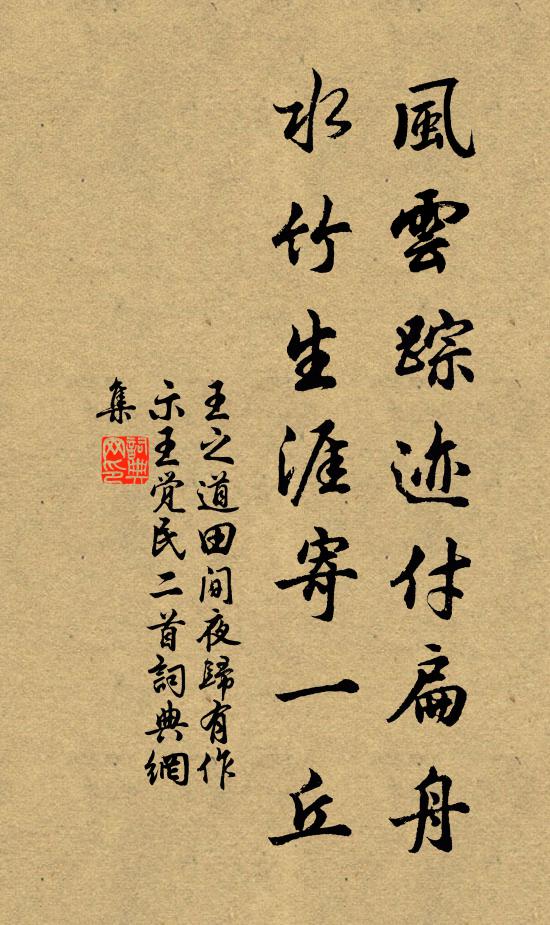 風雲踪迹付扁舟
水竹生涯寄一丘
王之道田间夜歸有作
示王觉民二首詞典網
集
詞典網印